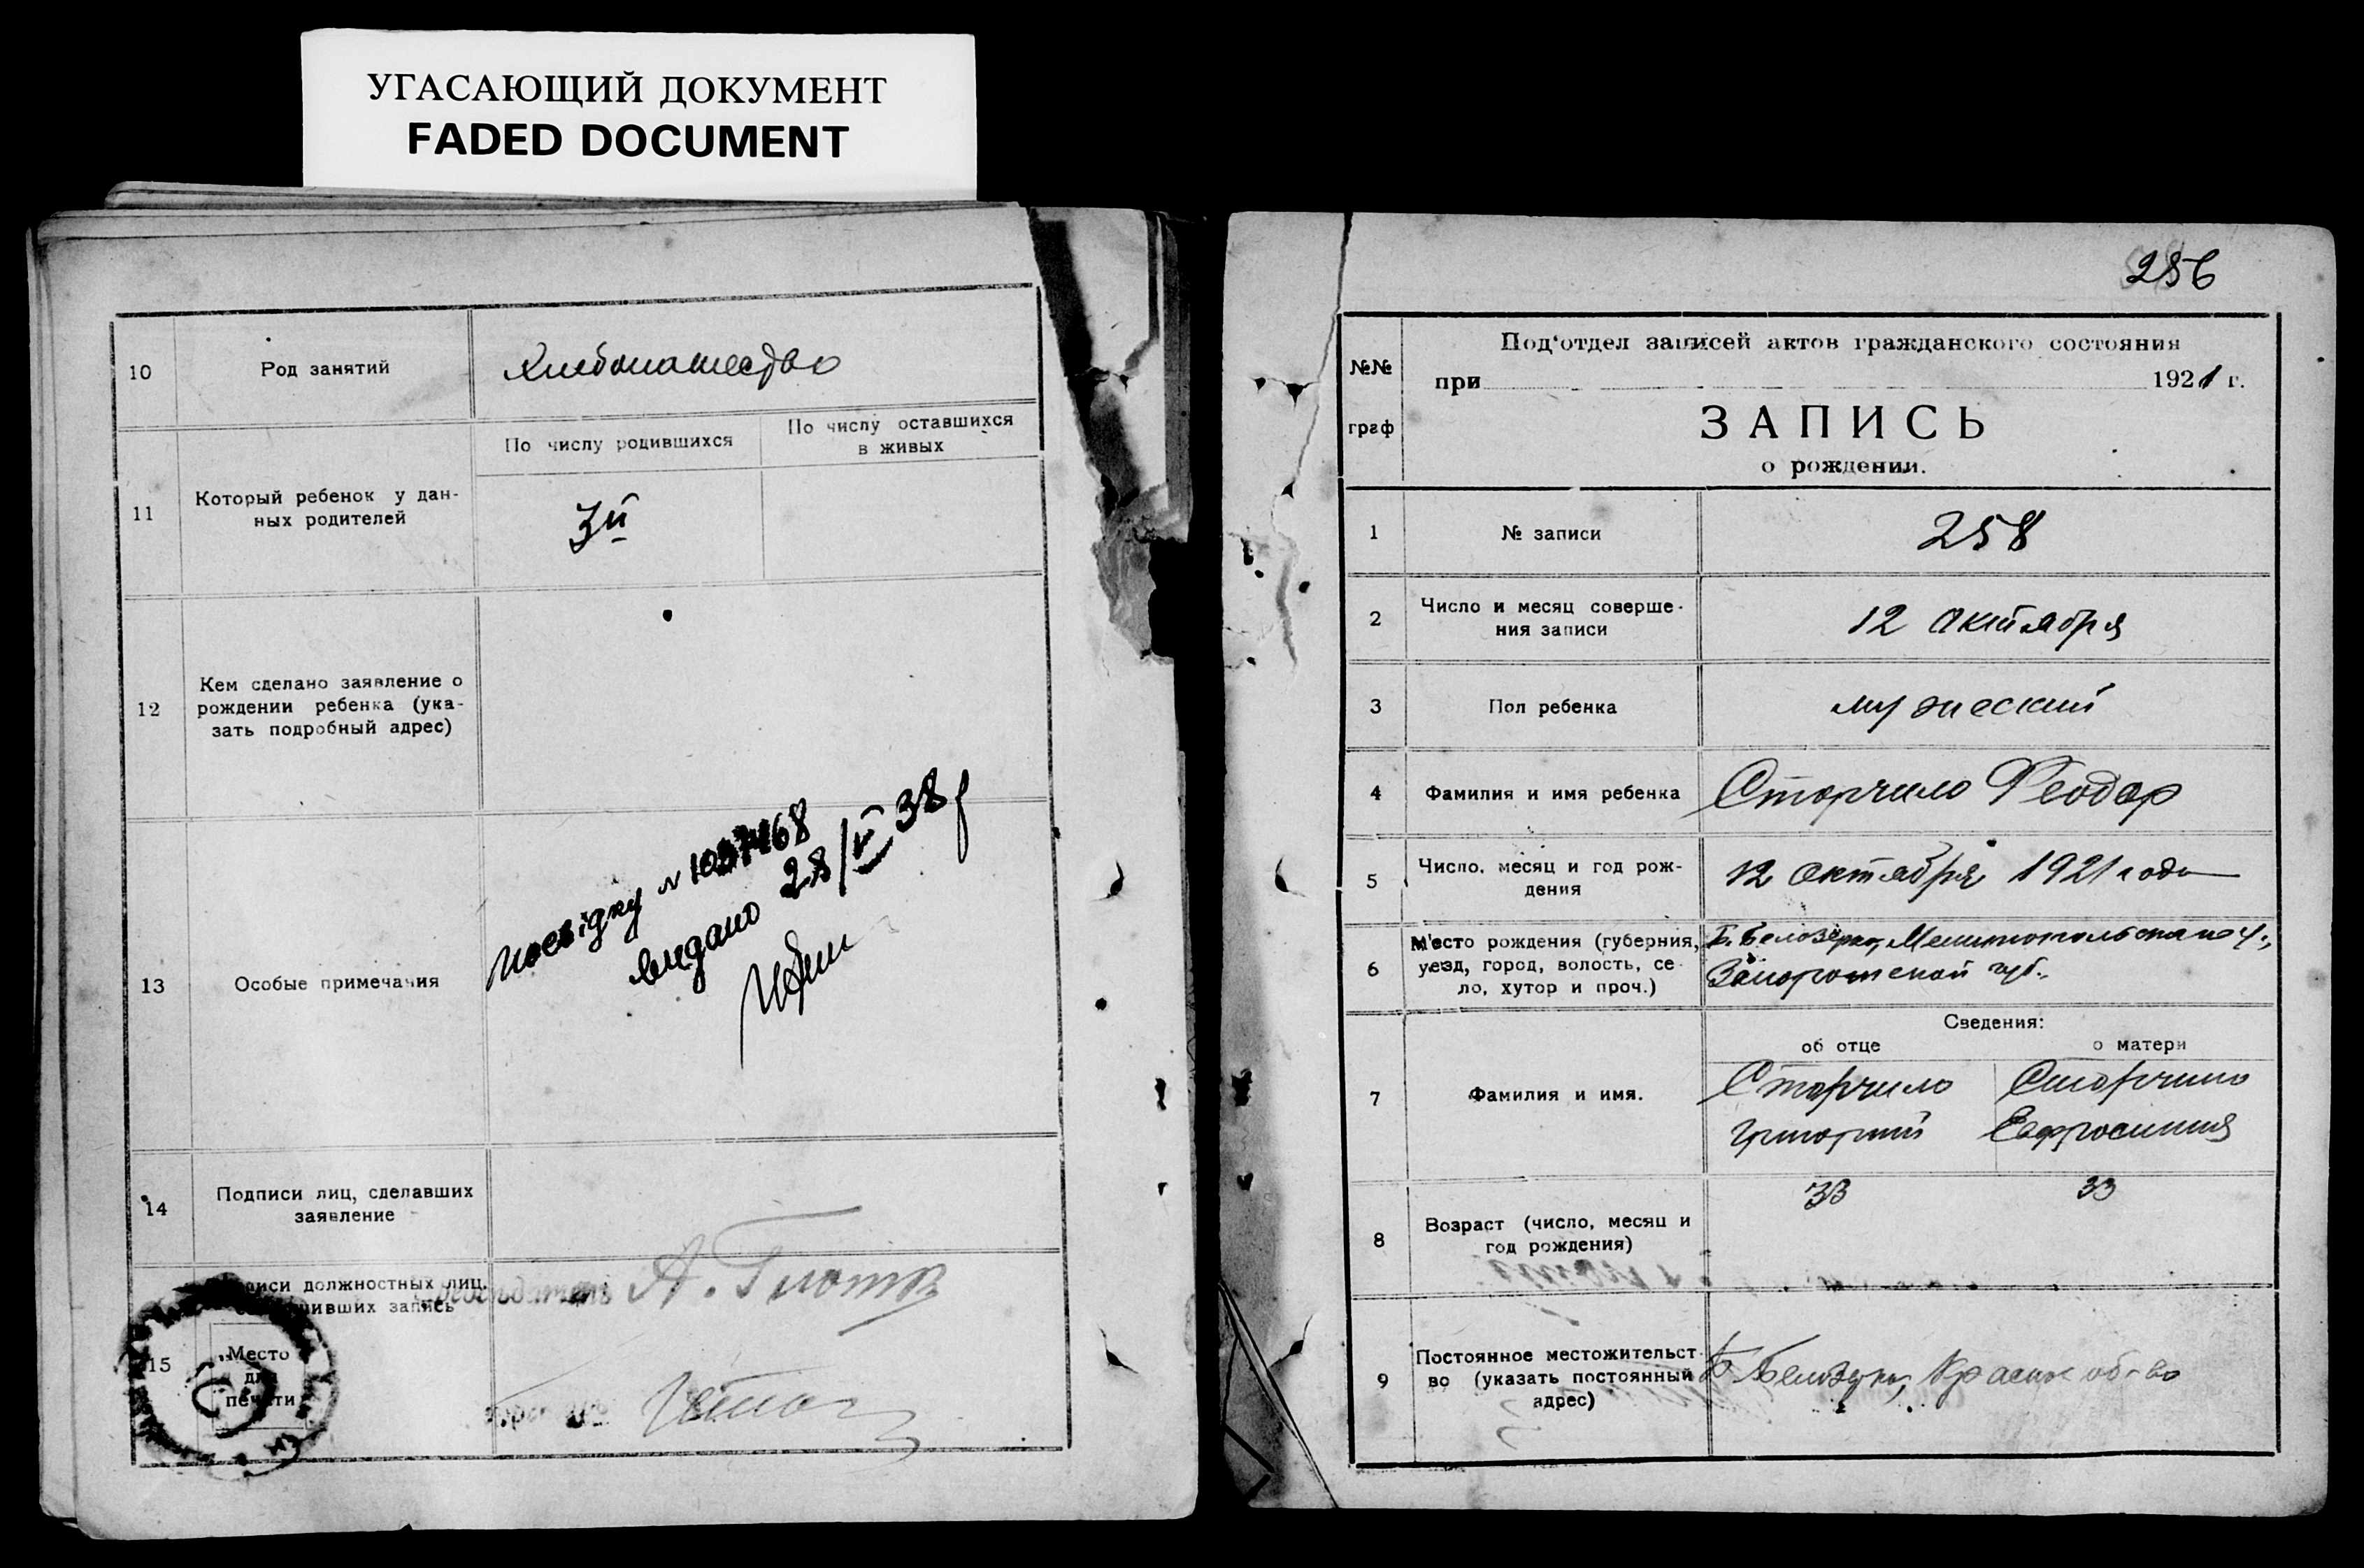 УГАСАЮЩИЙ ДОКУМЕНТ
FADED DOCUMENT
10
Род занятий
Хлебопашество
11
Который ребенок у дан-
ных родителей
По числу родившихся
По числу оставшихся
в живых
3й
12
Кем сделано заявление о
рождении ребенка (ука-
зать подробный адрес)
13
Особые примечания
посвідку
видано 28/ 38
14
Подписи лиц, сделавших
заявление
15
должностных лиц,
запись
Председатель А.
Место
для
печати
256
№№
граф
Под'отдел записей актов гражданского состояния
при 1921 г.
ЗАПИСЬ
о рождении.
1
№ записи
258
2
Число и месяц соверше-
ния записи
12 октября
3
Пол ребенка
мужеский
4
Фамилия и имя ребенка
Сторчило Феодор
5
Число, месяц и год рож-
дения
12 октября 1921 года
6
Место рождения (губерния,
уезд, город, волость, се-
ло, хутор и проч.)
Б. Белозерка, Мелитопольскаго у.,
Запорожской губ.
Сведения:
об отце
о матери
7
Фамилия и имя.
Сторчило
Григорий
Сторчило
Евфросиния
8
Возраст (число, месяц и
год рождения)
33
33
9
Постоянное местожительст
во (указать постоянный
адрес)
Б Белозерка, об-во